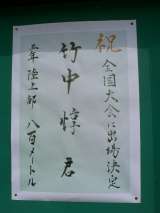 祝 全国大会に出場決定
竹中惇君
陸上部 八百メートル